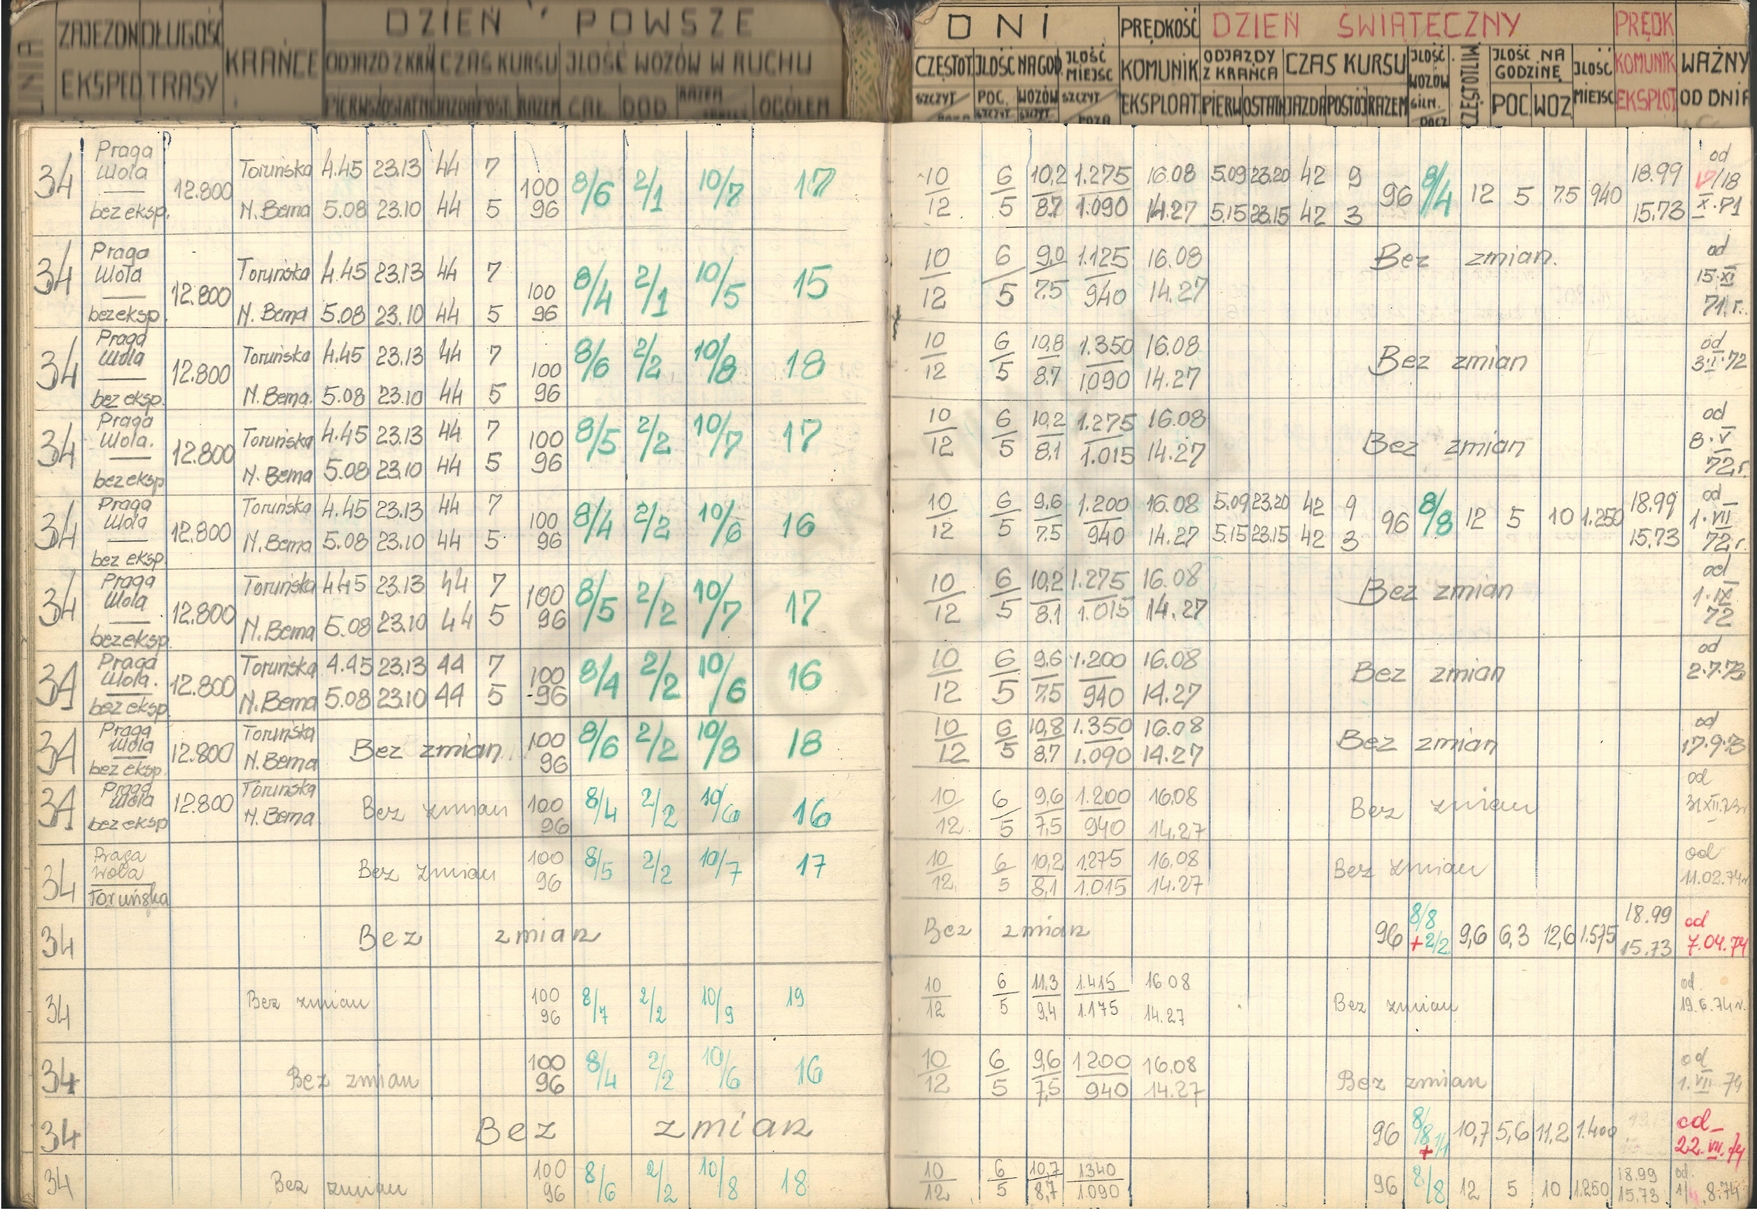 DZIEŃ POWSZE DNI PRĘDKOŚĆ DZIEŃ ŚWIĄTECZNY PRĘDK
LINIA ZAJEZDNI DŁUGOŚĆ KRAŃCE ODJAZD Z KRAŃ CZAS KURSU ILOŚĆ WOZÓW W RUCHU CZĘSTOT ILOŚĆ NA GOD. ILOŚĆ MIEJSC KOMUNIK ODJAZDY Z KRAŃCA CZAS KURSU ILOŚĆ WOZÓW ILOŚĆ NA GODZINĘ ILOŚĆ MIEJSC KOMUNIK WAŻNY
EKSPED TRASY PIERWSZ OSTATNI JAZDA POST. RAZEM CAŁ. DOD. RAZEM OGÓŁEM SZCZYT POC. WOZÓW SZCZYT EKSPLOAT PIERW OSTATN JAZDA POSTÓJ RAZEM CZĘSTOTLIW POC WOZ EKSPLOT OD DNIA
34 Praga Wola bez eksp. 12.800 Toruńska 4.45 23.13 44 7 100 8/6 2/1 10/7 17 10 6 10,2 1.275 16.08 5.09 23.20 42 9 96 8/4 12 5 7.5 940 18.99 od
N. Bema 5.08 23.10 44 5 96 12 5 8.7 1.090 14.27 5.15 23.15 42 3 15.73 18 X.71
34 Praga Wola bez eksp. 12.800 Toruńska 4.45 23.13 44 7 100 8/4 2/1 10/5 15 10 6 9,0 1.125 16.08 Bez zmian. od
N. Bema 5.08 23.10 44 5 96 12 5 7.5 940 14.27 15.XI 71.r.
34 Praga Wola bez eksp. 12.800 Toruńska 4.45 23.13 44 7 100 8/6 2/2 10/8 18 10 6 10,8 1.350 16.08 Bez zmian od
N. Bema. 5.08 23.10 44 5 96 12 5 8.7 1090 14.27 3.II.72
34 Praga Wola. bez eksp 12.800 Toruńska 4.45 23.13 44 7 100 8/5 2/2 10/7 17 10 6 10,2 1.275 16.08 Bez zmian od
N. Bema 5.08 23.10 44 5 96 12 5 8.1 1.015 14.27 8.V 72.r.
34 Praga Wola bez eksp. 12.800 Toruńska 4.45 23.13 44 7 100 8/4 2/2 10/6 16 10 6 9,6 1.200 16.08 5.09 23.20 42 9 96 8/8 12 5 10 1.250 18.99 od
N. Bema 5.08 23.10 44 5 96 12 5 7.5 940 14.27 5.15 23.15 42 3 15.73 1.VII 72.r.
34 Praga Wola bez eksp. 12.800 Toruńska 4.45 23.13 44 7 100 8/5 2/2 10/7 17 10 6 10,2 1.275 16.08 Bez zmian od
N. Bema 5.08 23.10 44 5 96 12 5 8.1 1.015 14.27 1.IX 72
34 Praga Wola. bez eksp 12.800 Toruńska 4.45 23.13 44 7 100 8/4 2/2 10/6 16 10 6 9,6 1.200 16.08 Bez zmian od
N. Bema 5.08 23.10 44 5 96 12 5 7.5 940 14.27 2.7.73
34 Praga Wola bez eksp. 12.800 Toruńska Bez zmian 100 8/6 2/2 10/8 18 10 6 10,8 1.350 16.08 Bez zmian od
N. Bema 96 12 5 8.7 1.090 14.27 17.9.73
34 Praga Wola bez eksp 12.800 Toruńska Bez zmian 100 8/4 2/2 10/6 16 10 6 9,6 1.200 16.08 Bez zmian od
N. Bema 96 12 5 7,5 940 14.27 31.XII.73r.
34 Praga Wola Toruńska Bez zmian 100 8/5 2/2 10/7 17 10 6 10,2 1275 16.08 Bez zmian od
96 12 5 8,1 1.015 14.27 11.02.74r.
34 Bez zmian Bez zmian 96 8/8 +2/2 9,6 6,3 12,6 1.575 18.99 15.73 od 7.04.74
34 Bez zmian 100 8/7 2/2 10/9 19 10 6 11.3 1.415 16.08 Bez zmian od
96 12 5 9,4 1.175 14.27 19.6.74r.
34 Bez zmian 100 8/4 2/2 10/6 16 10 6 9,6 1200 16.08 Bez zmian od
96 12 5 7,5 940 14.27 1.VII 74
34 Bez zmian 96 8/8 + 1/1 10,7 5,6 11,2 1.400 od 22.VII.74
34 Bez zmian 100 8/6 2/2 10/8 18 10 6 10,7 1340 96 8/8 12 5 10 1.250 18.99 od.
96 12 5 8,7 1.090 15.73 8.74